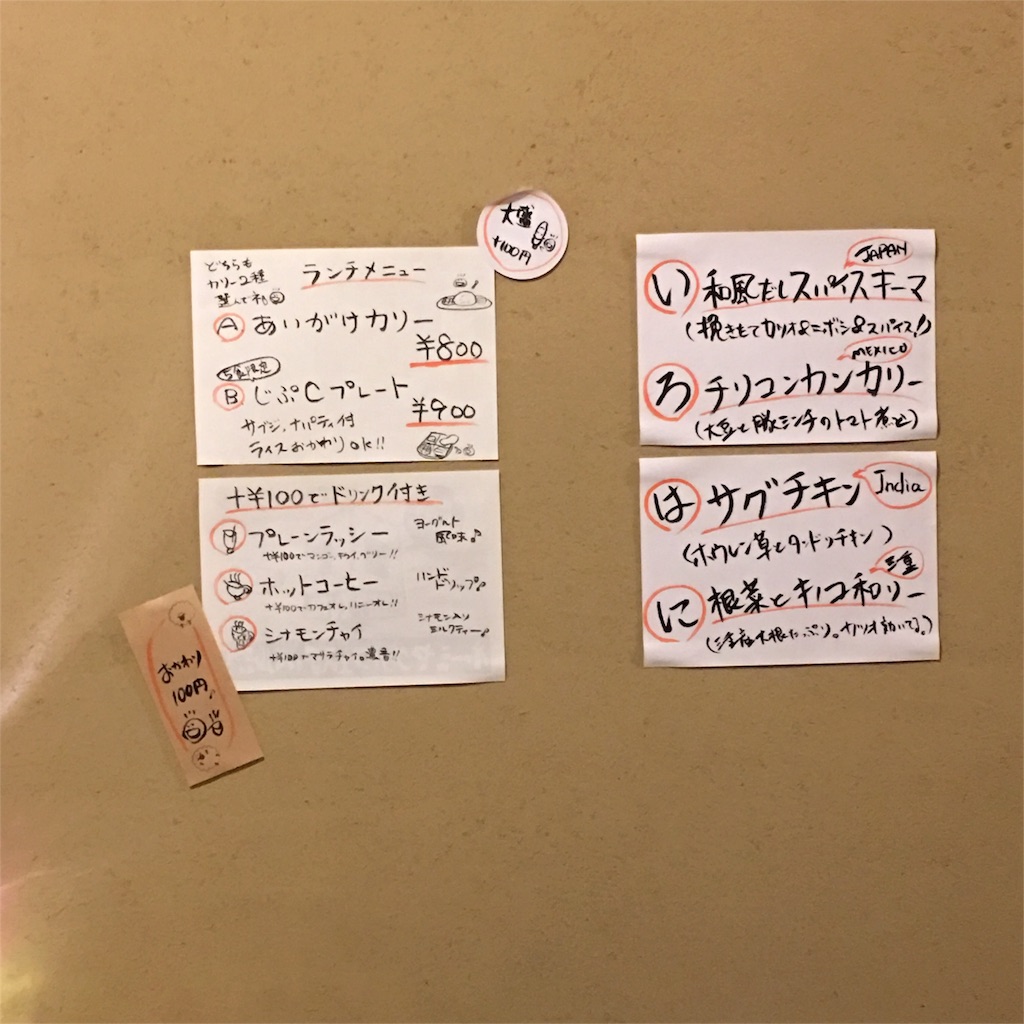 大盛
+100円
どちらも
カリー2種
選んでネ
ランチメニュー
A あいがけカリー
¥800
5食限定
B じぷCプレート
¥900
サブジ、チャパティ付
ライスおかわりOK!!
+¥100でドリンク付き
プレーンラッシー
ヨーグルト
風味♪
+¥100でマンゴ、
ホットコーヒー
ハンド
ドリップ♪
+¥100でカフェオレ、ハニーオレ!!
シナモンチャイ
シナモン入り
ミルクティー♪
+¥100でマサラチャイ。濃香!!
おかわり
100円♪
JAPAN
い 和風だしスパイスキーマ
(挽きたてカツオ&ニボシ&スパイス!!)
MEXICO
ろ チリコンカンカリー
(大豆と豚ミンチのトマト煮込)
は サグチキン
India
(ホウレン草とタンドリチキン)
に 根菜とキノコ和リー